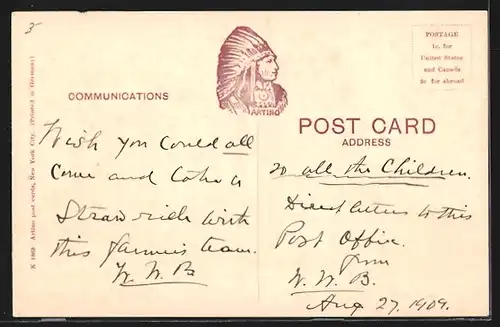 5
COMMUNICATIONS
ARTINO
POST CARD
ADDRESS
POSTAGE
1c. for
United States
and Canada
2c for abroad
N 1069 Artino post cards, New York City. (Printed in Germany)
Wish you could all
come and take a
Straw ride with
this farmer's team.
W. W. B
To all the Children.
Direct letters to this
Post Office.
from
W. W. B.
Aug 27, 1909.